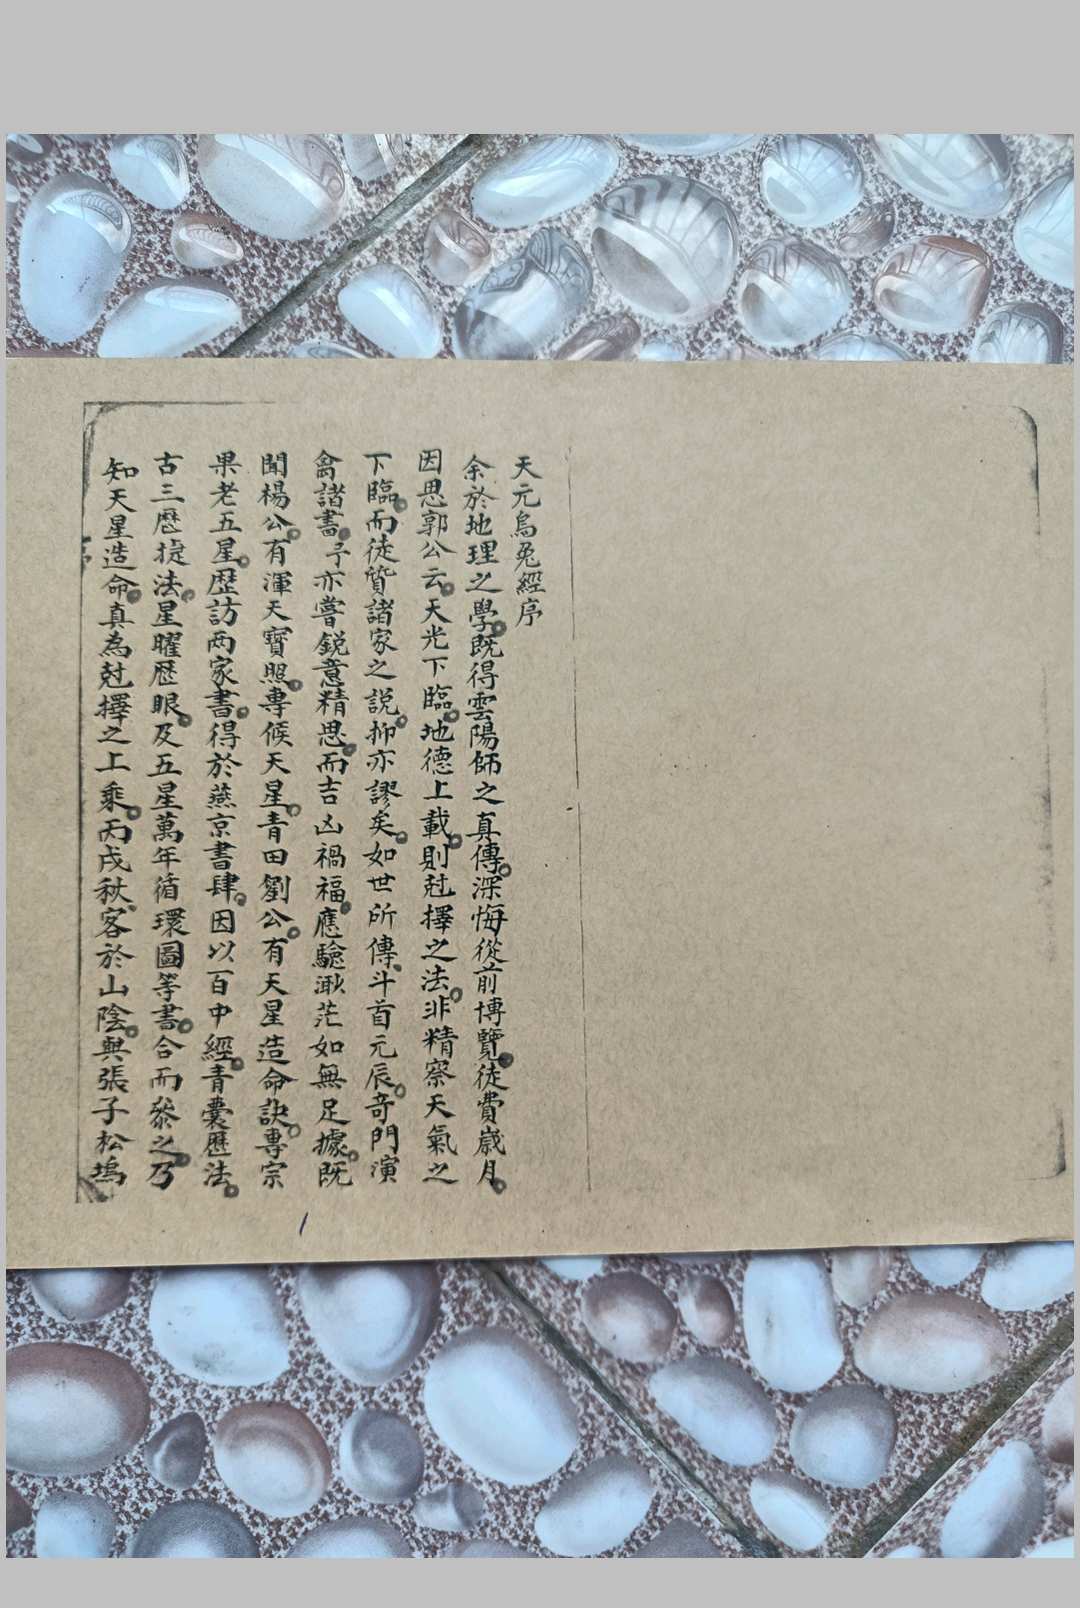 天元烏兔經序
余於地理之學既得雲陽師之真傳深悔從前博覽徒費歲月
因思郭公云天光下臨地德上載則尅擇之法非精察天氣之
下臨而徒質諸家之說抑亦謬矣如世所傳斗首元辰奇門演
禽諸書予亦嘗銳意精思而吉凶禍福應驗渺茫如無足據既
聞楊公有渾天寶照專候天星青田劉公有天星造命訣專宗
果老五星歷訪兩家書得於燕京書肆因以百中經青囊歷法
古三歷捷法星曜歷眼及五星萬年循環圖等書合而叅之乃
知天星造命真為尅擇之上乘丙戌秋客於山陰與張子松塢